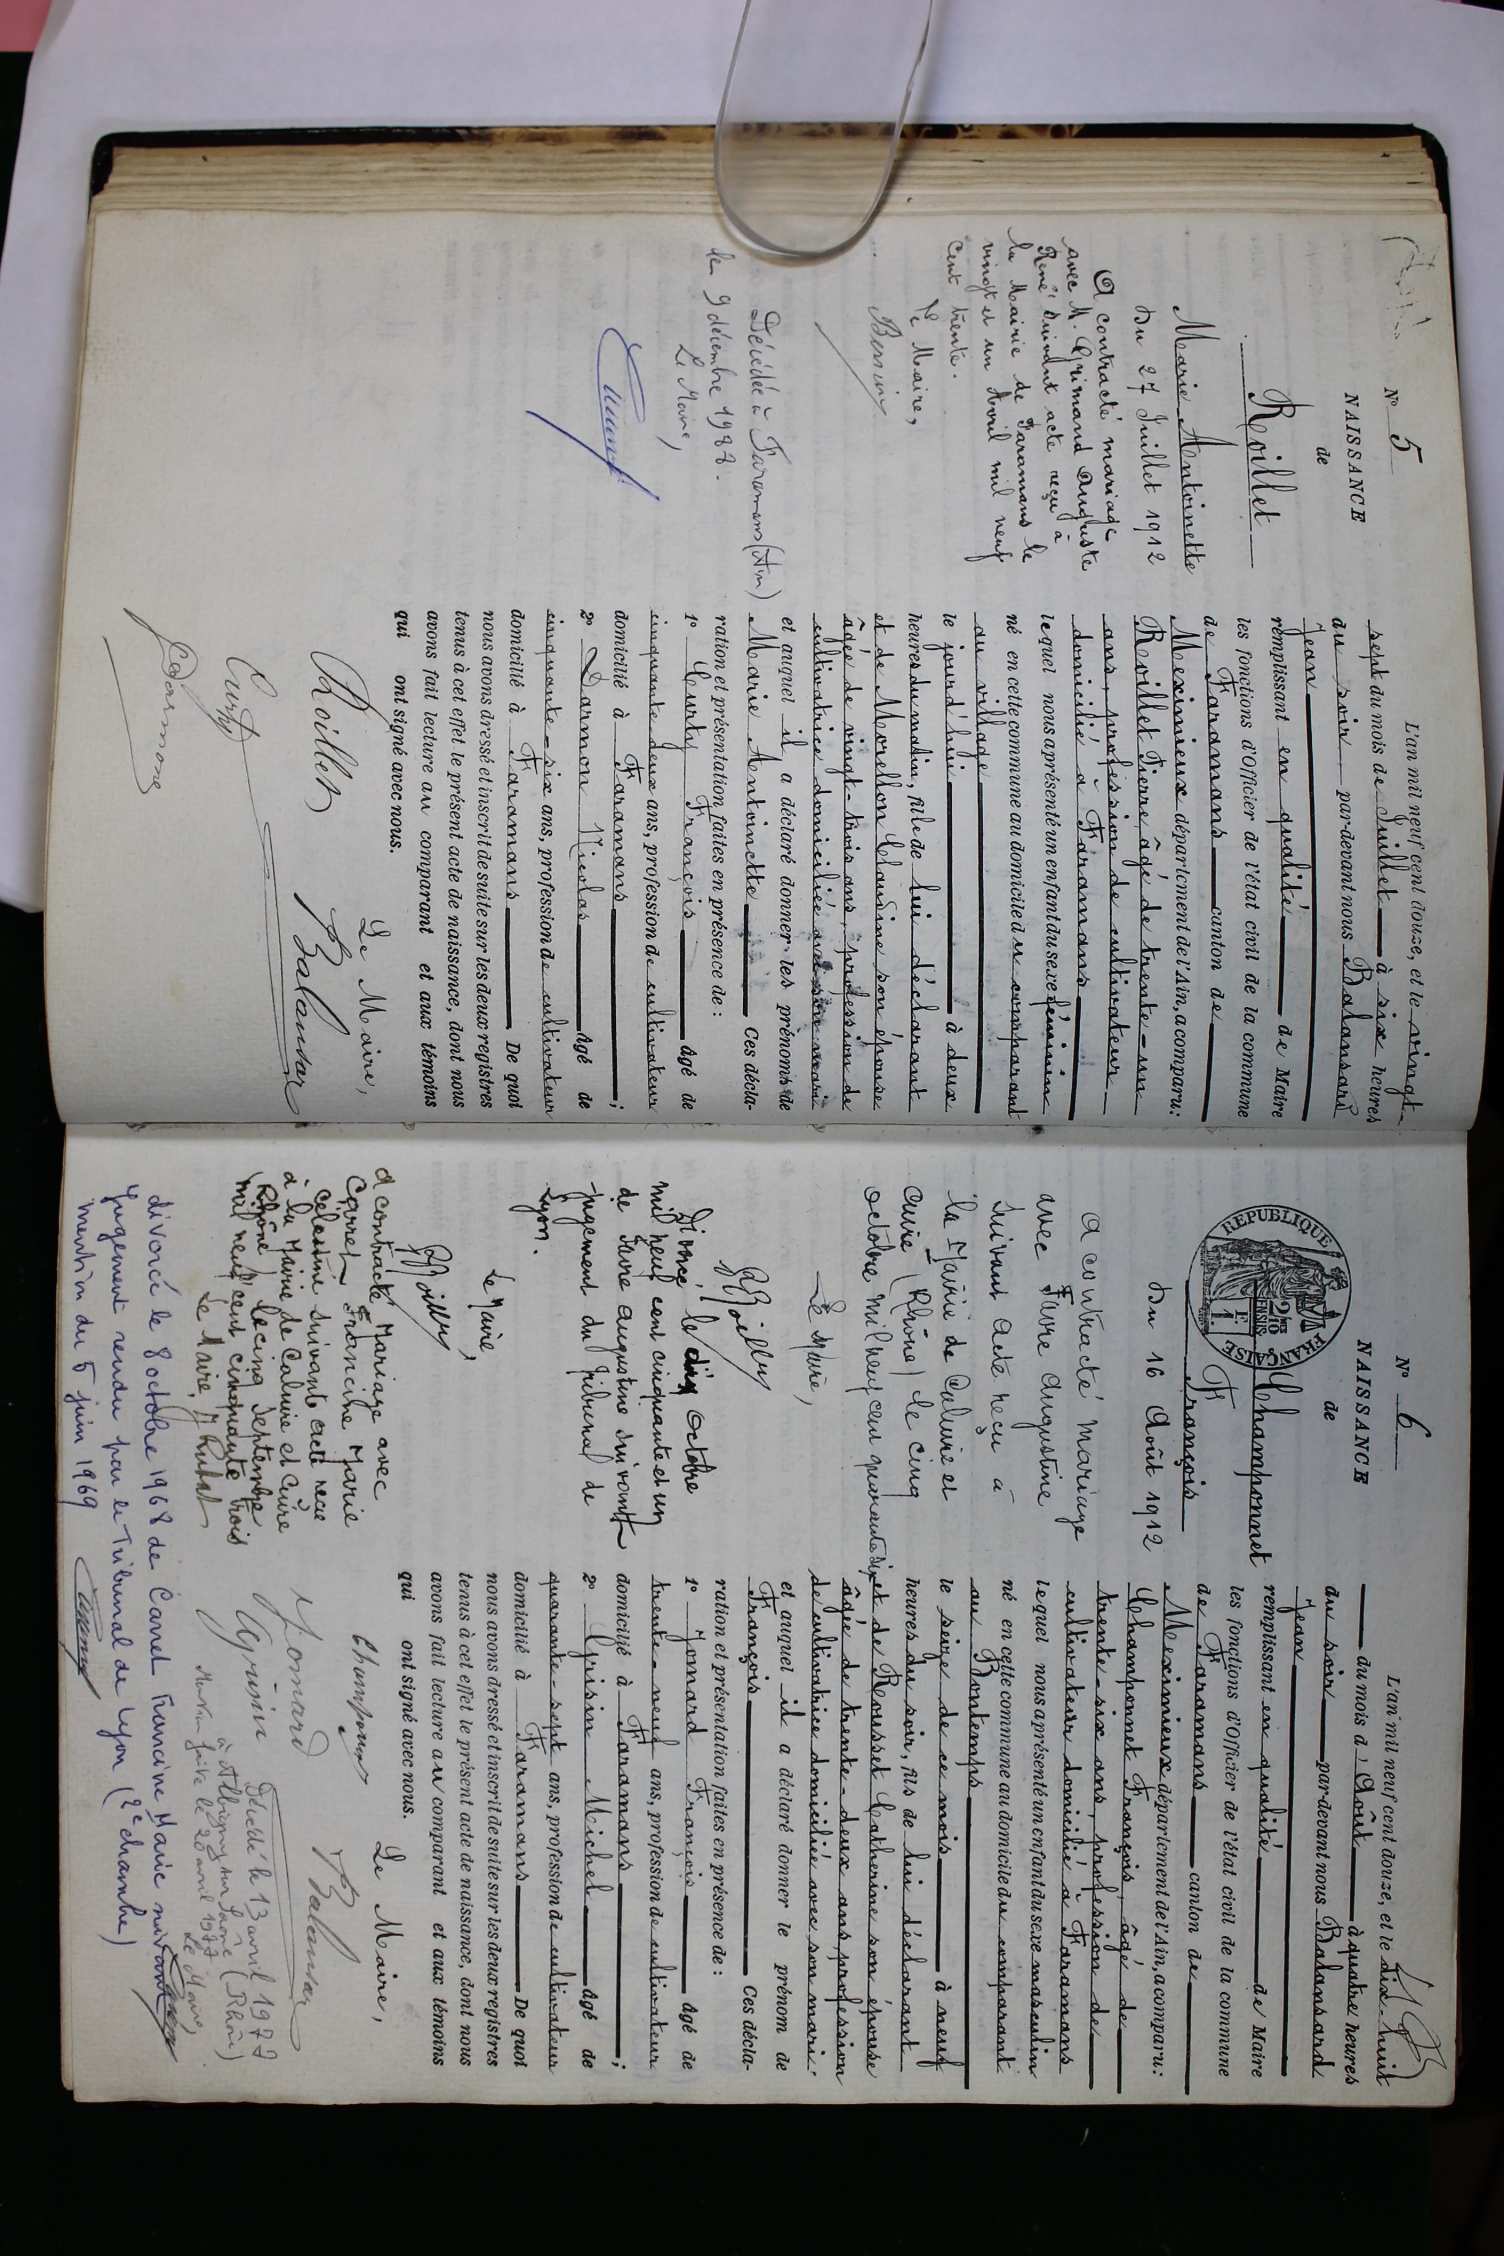 N° 5
NAISSANCE
de
Roillet
Marie Antoinette
Du 27 Juillet 1912
A contracté mariage
avec M. Grimand Auguste
René suivant acte reçu à
la Mairie de Faramans le
vingt et un Avril mil neuf
cent trente.
Le Maire,
Décédée à Faramans (Ain)
le 9 décembre 1988.
Le Maire,
L'an mil neuf cent douze, et le vingt-
sept du mois de Juillet à six heures
du soir par-devant nous Balansard
Jean
remplissant en qualité de Maire
les fonctions d'Officier de l'état civil de la commune
de Faramans canton de
Meximieux département de l'Ain, a comparu:
Roillet Pierre, âgé de trente-un
ans, profession de cultivateur
domicilié à Faramans
lequel nous a présenté un enfant du sexe féminin
né en cette commune au domicile du comparant
au village
le jourd'hui à deux
heures du matin, fille de lui déclarant
et de Morellon Claudine son épouse
âgée de vingt-trois ans, profession de
cultivatrice domiciliée avec son mari
et auquel il a déclaré donner les prénoms de
Marie Antoinette Ces décla-
ration et présentation faites en présence de:
1° Curty François Agé de
cinquante-deux ans, profession de cultivateur
domicilié à Faramans ;
2° Darmon Nicolas Agé de
cinquante-six ans, profession de cultivateur
domicilié à Faramans De quoi
nous avons dressé et inscrit de suite sur les deux registres
tenus à cet effet le présent acte de naissance, dont nous
avons fait lecture au comparant et aux témoins
qui ont signé avec nous.
Le Maire,
Roillet Balansard
Curty
Darmon
N° 6
NAISSANCE
de
REPUBLIQUE FRANÇAISE
Champonnet
François
Du 16 Août 1912
A contracté Mariage
avec Favre Augustine
suivant acte reçu à
la Mairie de Caluire et
Cuire (Rhône) le cinq
octobre mil neuf cent quarante six
Le Maire,
Divorcé le dix Octobre
mil neuf cent cinquante et un
de Favre Augustine suivant
jugement du Tribunal de
Lyon.
Le Maire,
A contracté Mariage avec
Carret Francine Marie
Célestine suivant acte reçu
à la Mairie de Caluire et Cuire
(Rhône) le cinq Septembre
mil neuf cent cinquante trois
Le Maire,
divorcé le 8 octobre 1968 de Carret Francine Marie suivant
jugement rendu par le Tribunal de Lyon (2e chambre)
mention du 5 juin 1969
L'an mil neuf cent douze, et le dix-huit
du mois d'Août à quatre heures
du soir par-devant nous Balansard
Jean
remplissant en qualité de Maire
les fonctions d'Officier de l'état civil de la commune
de Faramans canton de
Meximieux département de l'Ain, a comparu:
Champonnet François, âgé de
trente-six ans, profession de
cultivateur domicilié à Faramans
lequel nous a présenté un enfant du sexe masculin
né en cette commune au domicile du comparant
au Bontemps
le seize de ce mois à neuf
heures du soir, fils de lui déclarant
et de Rousset Catherine son épouse
âgée de trente-deux ans, profession
de cultivatrice domiciliée avec son mari.
et auquel il a déclaré donner le prénom de
François Ces décla-
ration et présentation faites en présence de:
1° Jomard François Agé de
trente-neuf ans, profession de cultivateur
domicilié à Faramans ;
2° Grisin Michel Agé de
quarante-sept ans, profession de cultivateur
domicilié à Faramans De quoi
nous avons dressé et inscrit de suite sur les deux registres
tenus à cet effet le présent acte de naissance, dont nous
avons fait lecture au comparant et aux témoins
qui ont signé avec nous.
Le Maire,
Jomard Balansard
Grisin
Décédé le 13 avril 1977
à Albigny sur Saône (Rhône)
Mention faite le 20 avril 1977
Le Maire,